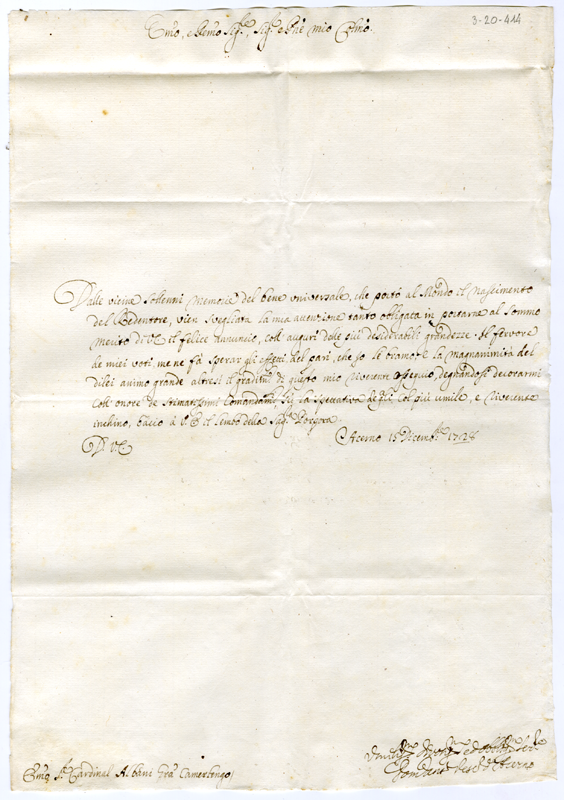 3-20-414
Em̃o, e Rem̃o Sig.ʳ, Sig.ʳ e Pñe mio Colm̃o.
Dalle vicine Sollenni Memorie del bene universale, che portò al Mondo il Nascimento
del Redentore, vien svegliata la mia attenzione tanto obligata in portarne al Sommo
merito di V.E. il felice Annuncio, coll' auguri dele più desiderabili grandezze. Il fervore
de miei voti me ne fà sperar gli effetti del pari, che jo le bramo; e la magnanimità del
di lei animo grande altresì il gradim.ᵗᵒ di questo mio riverente ossequio, degnandosi decorarmi
coll' onore de stimatissimi Comandam.ᵗⁱ, su la ispettativa de quali col più umile, e riverente
inchino, bacio à V.E. il lembo della Sag.ᵃ Porpora.
Di V.E. Acerno 15 Dicemb.ᵉ 1728
Em̃o S.ʳ Cardinal Albani Grã Camerlengo
Umiliss.ᵐᵒ Devotiss.ᵐᵒ ed obligatiss.ᵐᵒ
Vesc.ᵒ d'Acerno